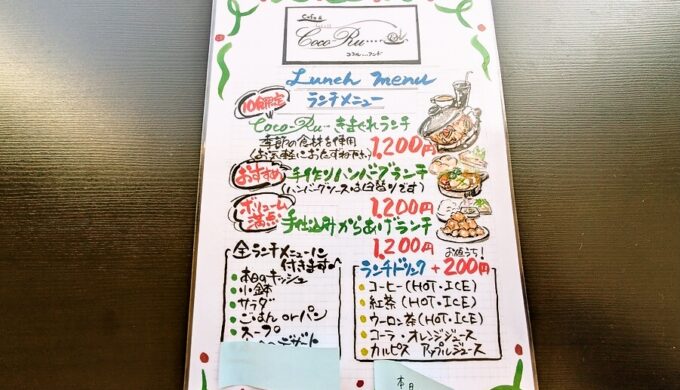 Cafe &
Coco Ru....
Lunch menu
ランチメニュー
10食限定
Coco-Ru... きまぐれランチ
季節の食材を使用
(お気軽におたずね下さい) 1,200円
おすすめ 手作りハンバーグランチ
(ハンバーグソースは日替りです)
1,200円
ボリューム満点 手仕込みからあげランチ
1,200円
全ランチメニューに
付きます♪
本日のキッシュ
小鉢
サラダ
ごはん or パン
スープ
デザート
お得うち!
ランチドリンク +200円
コーヒー (HOT・ICE)
紅茶 (HOT・ICE)
ウーロン茶 (HOT・ICE)
コーラ・オレンジジュース
カルピス アップルジュース
本日